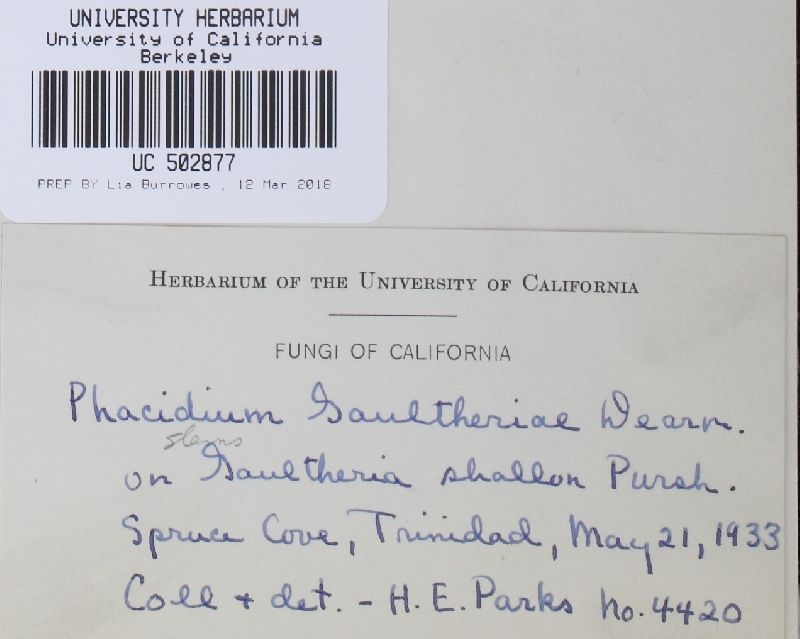 UNIVERSITY HERBARIUM
University of California
Berkeley
UC 502877
PREP BY Lia Burrowes , 12 Mar 2018
HERBARIUM OF THE UNIVERSITY OF CALIFORNIA
FUNGI OF CALIFORNIA
Phacidium Gaultheriae Dearn.
stems
on Gaultheria shallon Pursh.
Spruce Cove, Trinidad, May 21, 1933
Coll + det. - H. E. Parks No. 4420